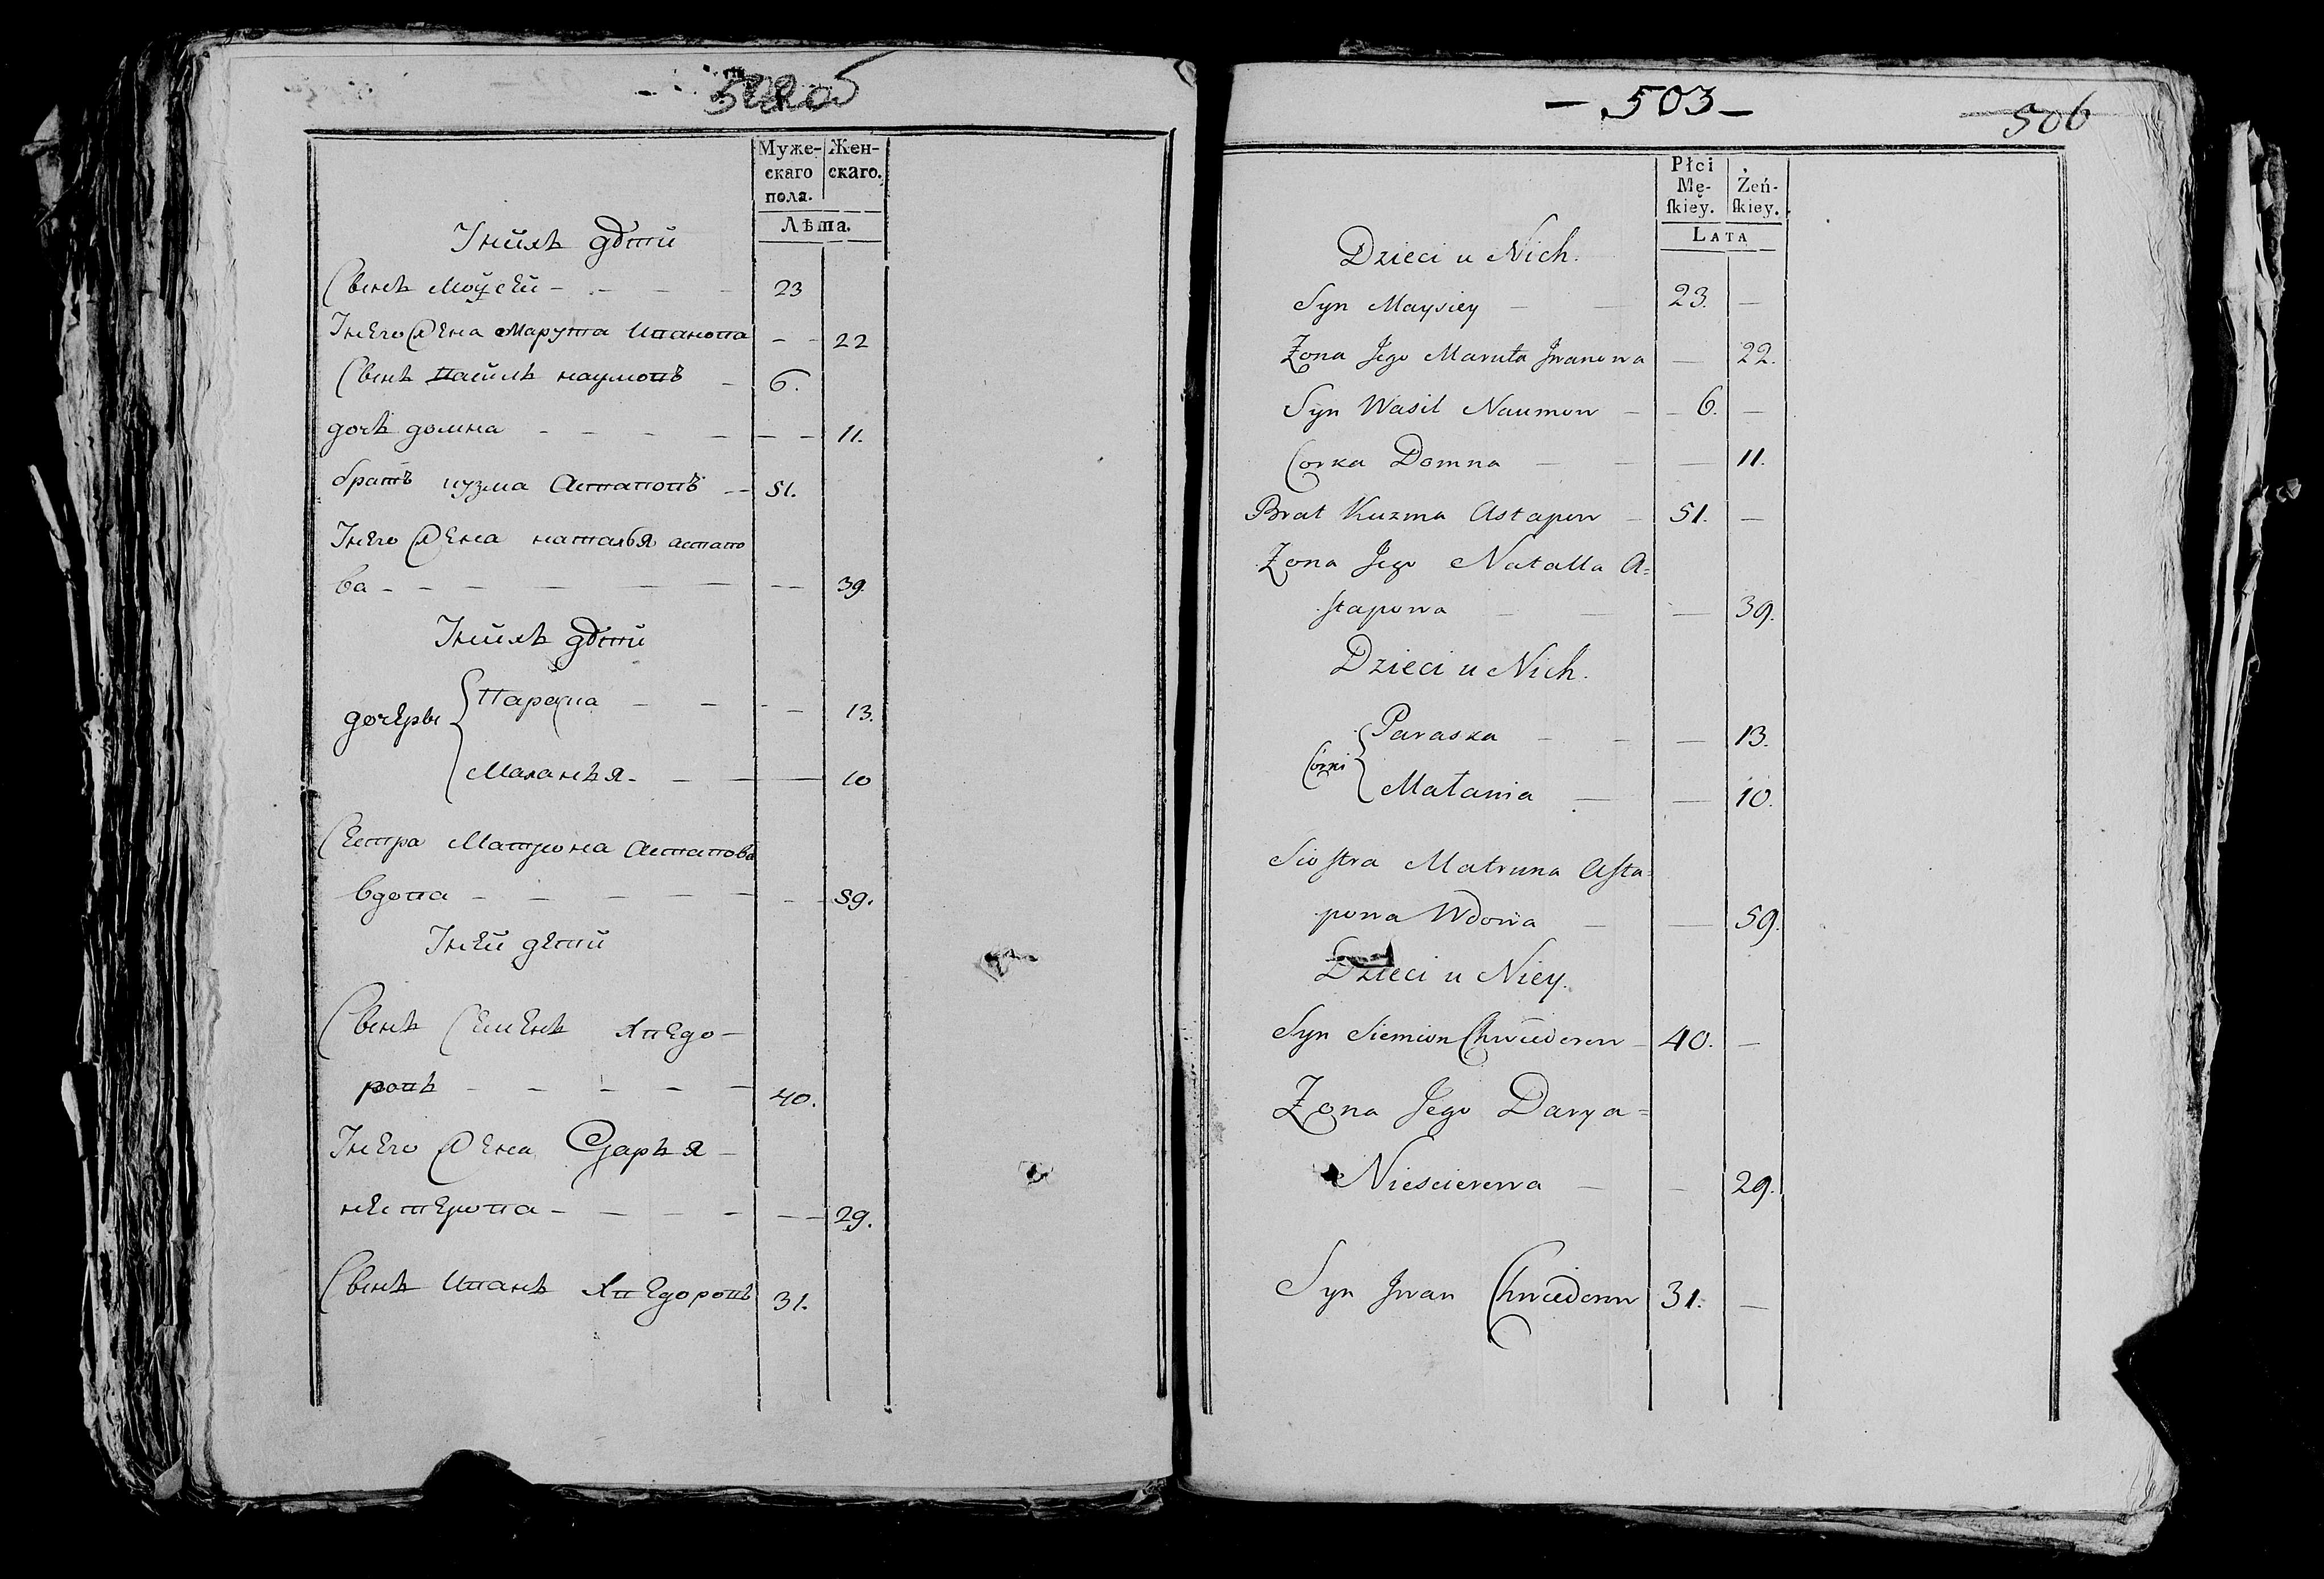 Муже-
скаго
пола.
Жен-
скаго.
Лѣта.
Унихъ дѣти
Сынъ Моусей - - - - 23
Унего жена Марута Иванова - - 22
Сынъ Василъ Наумовъ - 6.
дочь домна - - - - - - 11.
братъ кузма Астаповъ - - 51.
Унего жена наталья астапо
ва - - - - - - - 39.
Унихъ дѣти
дочеры { Параска - - - - 13.
Маланья - - - - 10
Сестра Матрюна Астапова
вдова - - - - - - 59.
Уней дети
Сынъ Семенъ Хведо-
ровъ - - - - - 40.
Унего жена Дарья -
нестерова - - - - - 29.
Сынъ Иванъ Хведоровъ 31.
- 503 -
506
Płci
Mę-
ſkiey.
Żeń-
ſkiey.
LATA
Dzieci u Nich.
Syn Maysiey — — 23. —
Żona Jego Maruta Jwanowa — 22.
Syn Wasil Naumow — - 6. —
Corka Domna — — — 11.
Brat Kuzma Astapow — 51. —
Żona Jego Natalla A=
stapowa — — — 39.
Dzieci u Nich.
Corki { Paraska — — — 13.
Małania — — 10.
Siostra Matruna Asta=
powa Wdowa — — 59.
Dzieci u Niey.
Syn Siemion Chwiederow - 40. —
Żona Jego Darya=
Niescierowa — — 29.
Syn Jwan Chwiedorow 31. —